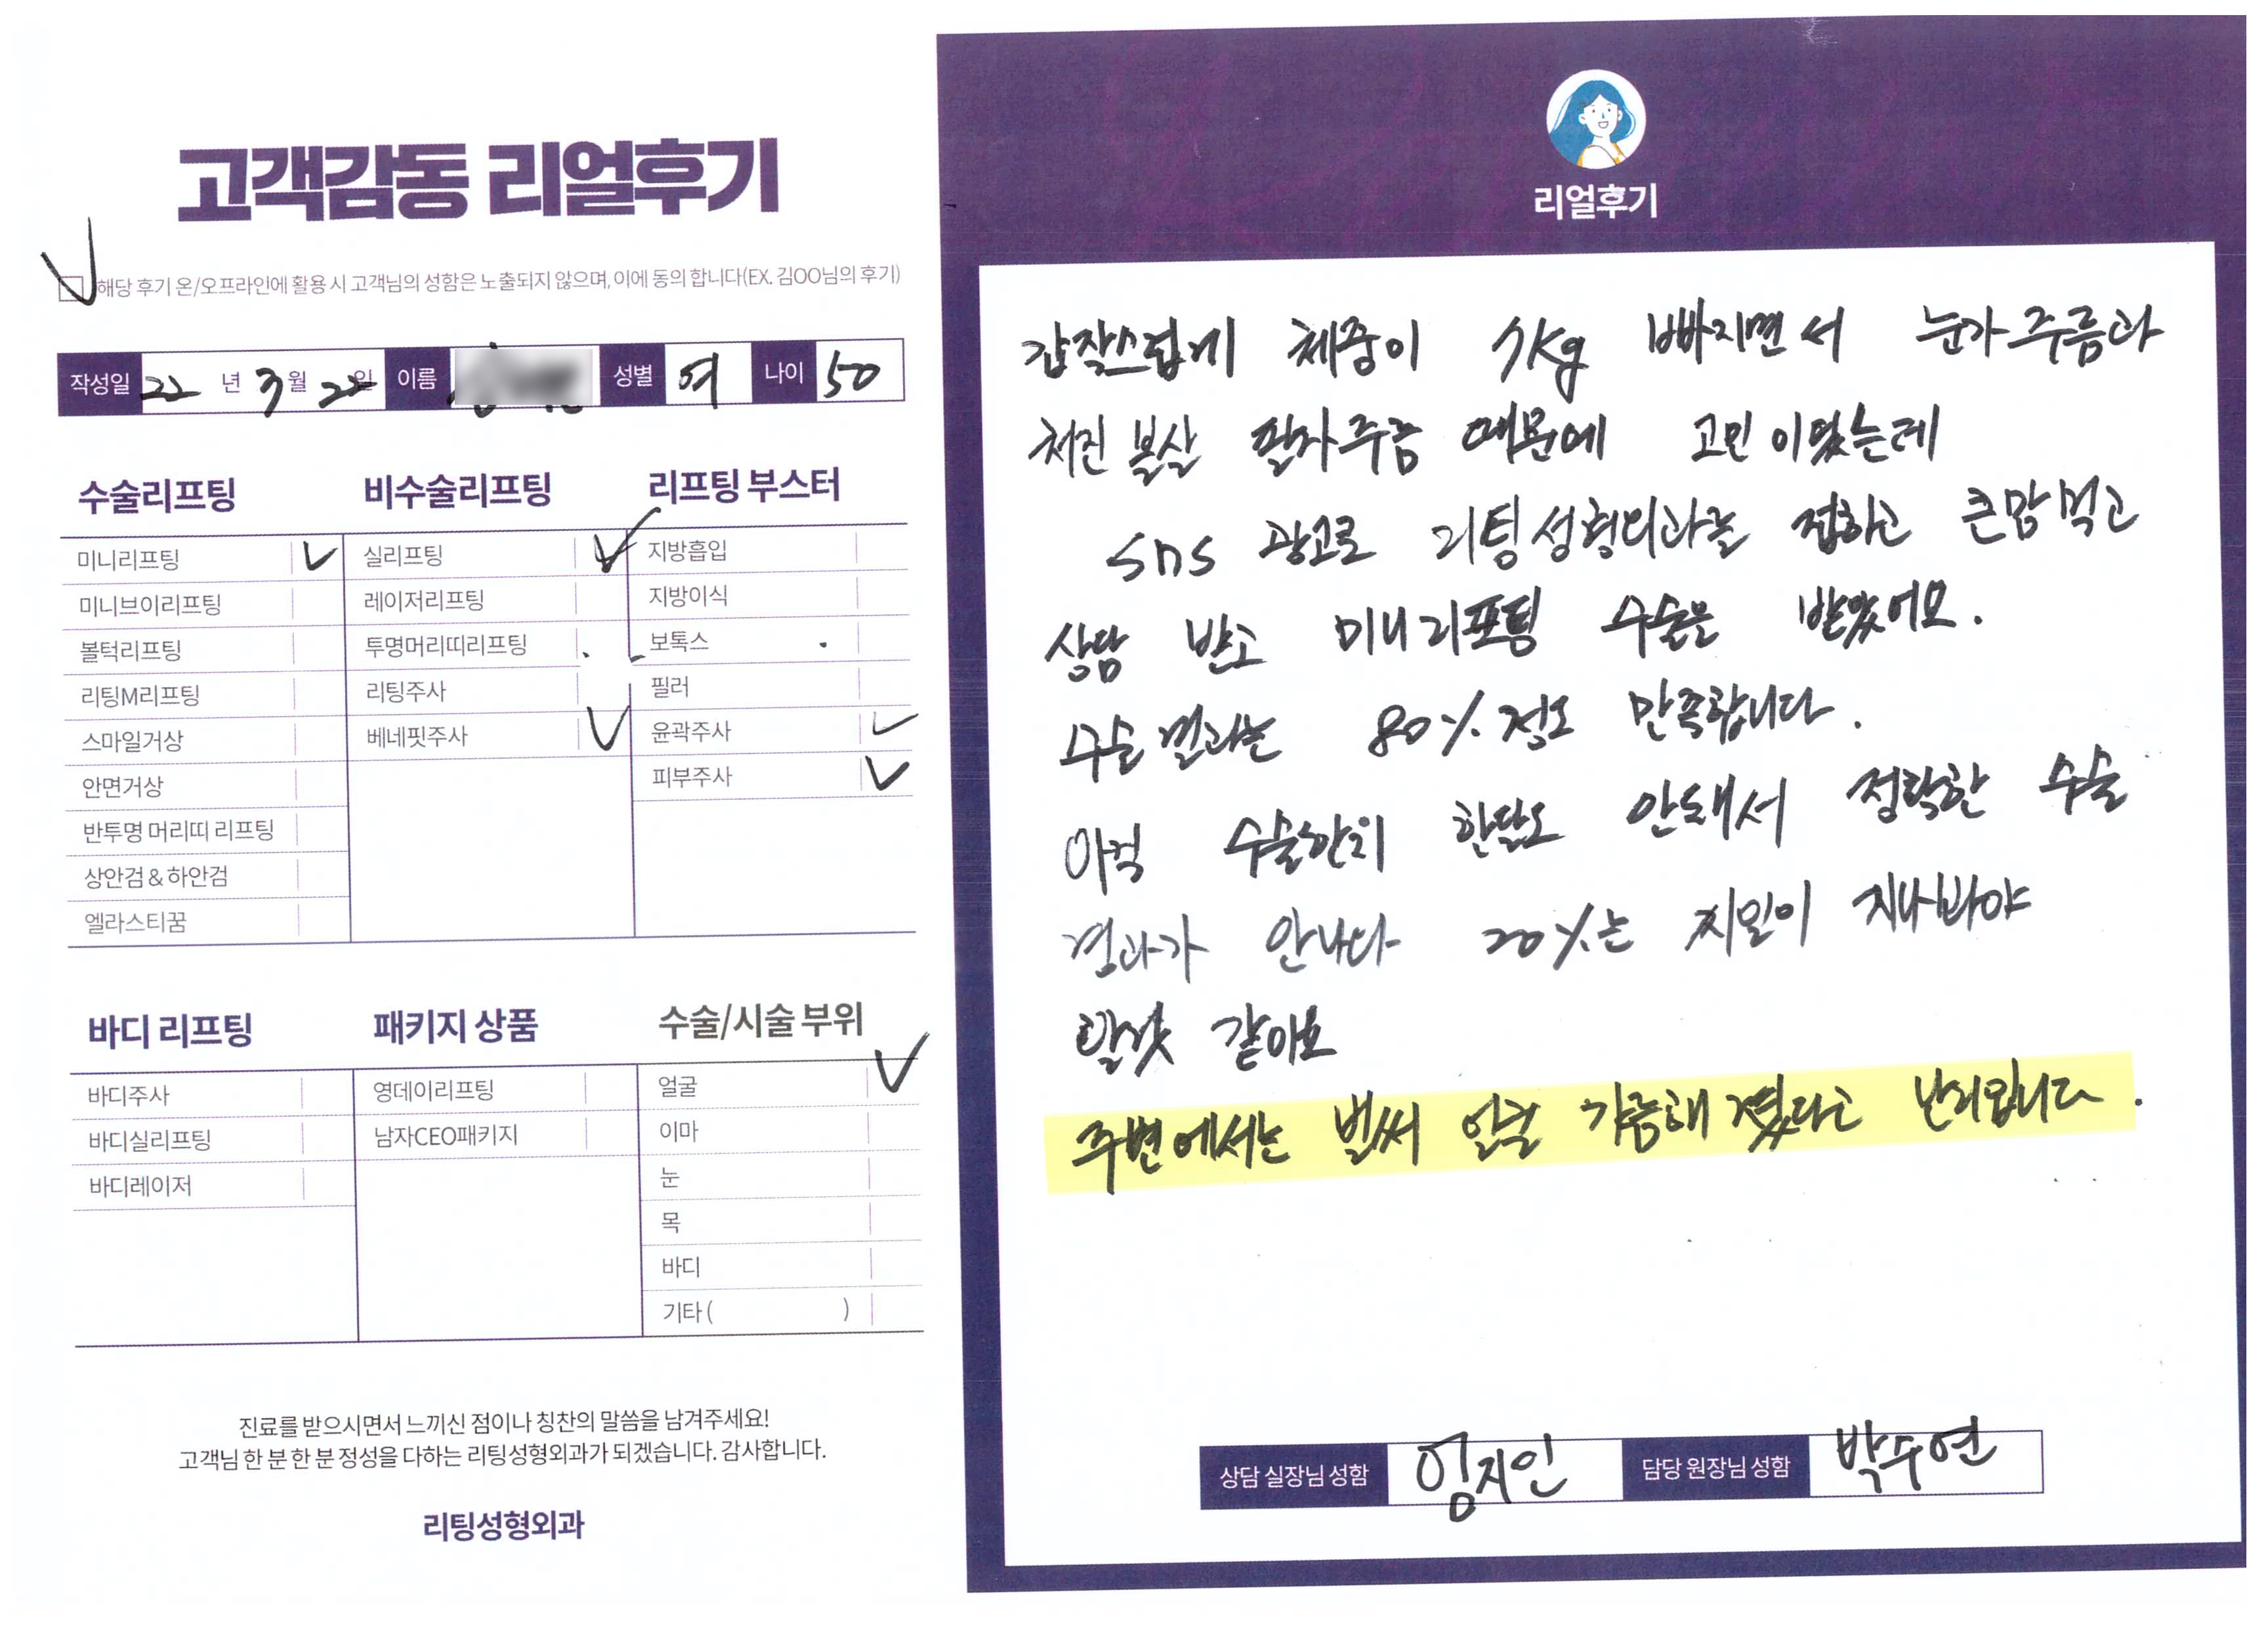 고객감동 리얼후기
해당 후기 온/오프라인에 활용 시 고객님의 성함은 노출되지 않으며, 이에 동의 합니다(EX. 김OO님의 후기)
작성일 22 년 3 월 22 일 이름 성별 여 나이 50
수술리프팅 비수술리프팅 리프팅 부스터
미니리프팅 실리프팅 지방흡입
미니브이리프팅 레이저리프팅 지방이식
볼턱리프팅 투명머리띠리프팅 보톡스
리팅M리프팅 리팅주사 필러
스마일거상 베네핏주사 윤곽주사
안면거상 피부주사
반투명 머리띠 리프팅
상안검 & 하안검
엘라스티꿈
바디 리프팅 패키지 상품 수술/시술 부위
바디주사 영데이리프팅 얼굴
바디실리프팅 남자CEO패키지 이마
바디레이저 눈
목
바디
기타 ( )
진료를 받으시면서 느끼신 점이나 칭찬의 말씀을 남겨주세요!
고객님 한 분 한 분 정성을 다하는 리팅성형외과가 되겠습니다. 감사합니다.
리팅성형외과
리얼후기
갑작스럽게 체중이 kg 빠지면서 눈가 주름과
처진 볼살 팔자주름 때문에 고민이였는데
SNS 광고로 리팅성형외과를 접하고 큰맘먹고
상담 받고 미니리프팅 수술을 받았어요.
수술결과는 80% 정도 만족합니다.
아직 수술한지 한달도 안돼서 정확한 수술
결과가 안나와 20%는 지나봐야
알것 같아요
주변에서는 벌써 얼굴 갸름해졌다고 난리입니다.
상담 실장님 성함 임지인 담당 원장님 성함 박수연